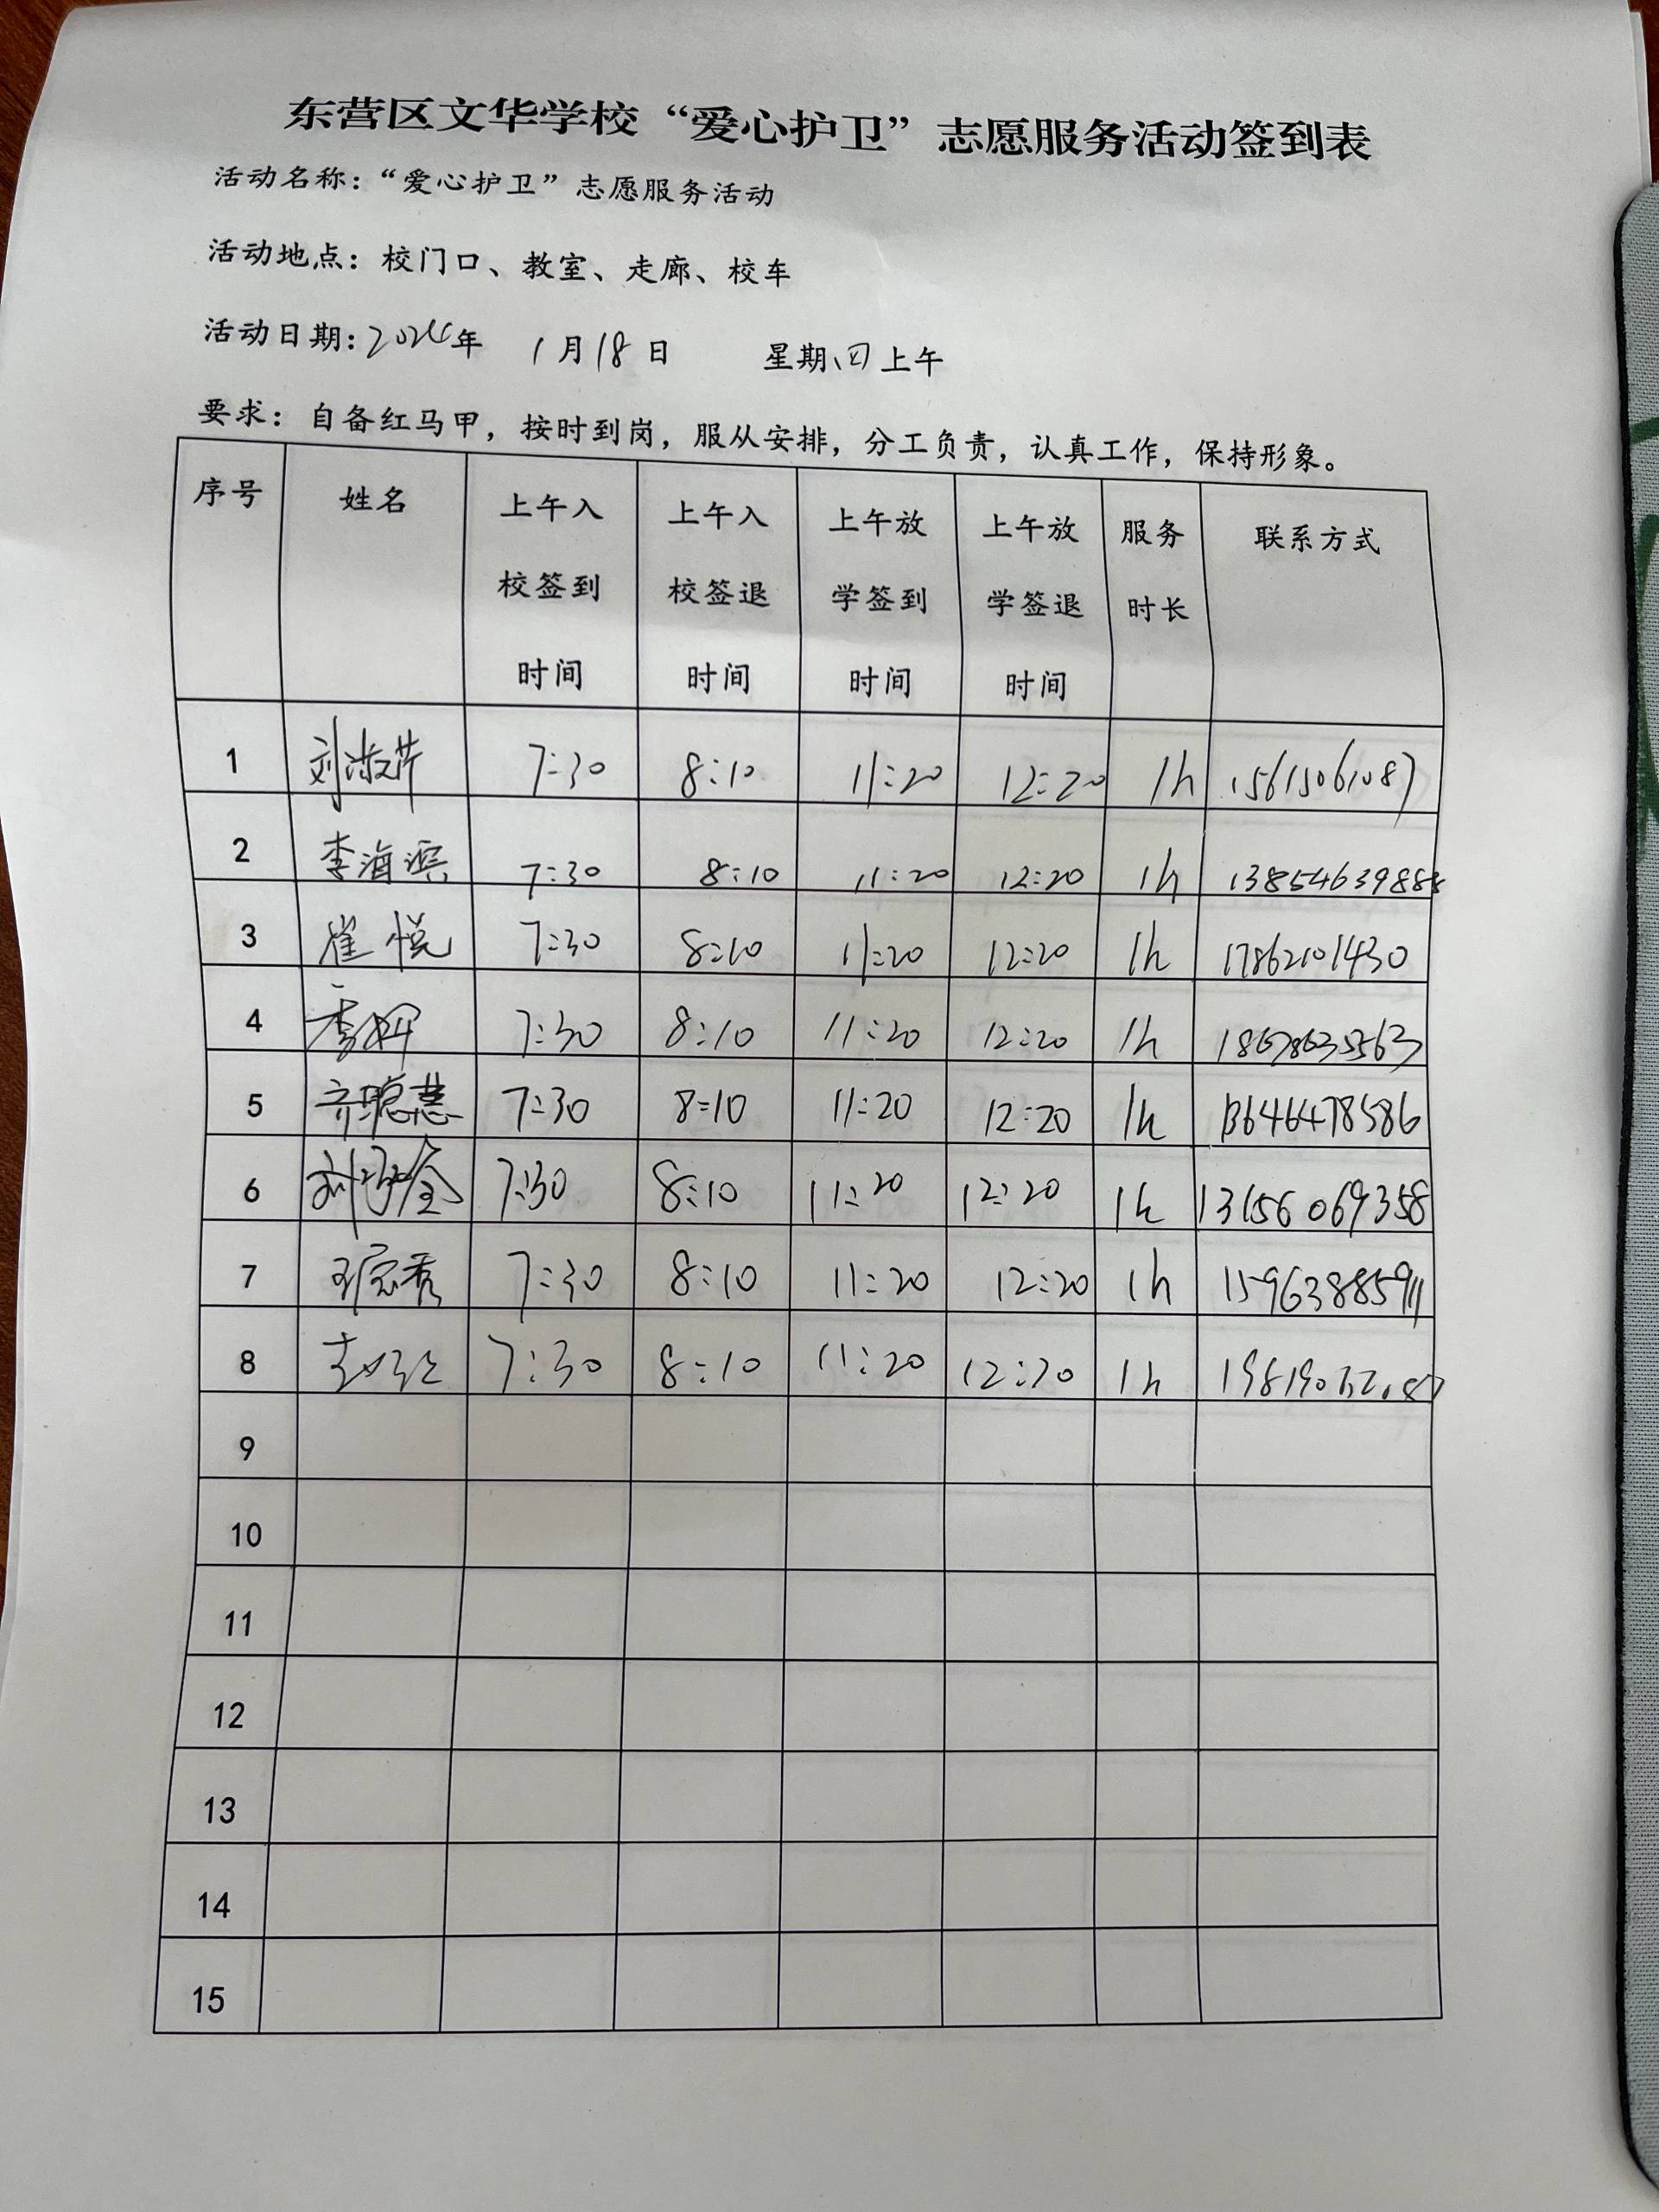 东营区文华学校“爱心护卫”志愿服务活动签到表
活动名称：“爱心护卫”志愿服务活动
活动地点：校门口、教室、走廊、校车
活动日期：2024年 1月18日 星期四上午
要求：自备红马甲，按时到岗，服从安排，分工负责，认真工作，保持形象。
序号 姓名 上午入校签到时间 上午入校签退时间 上午放学签到时间 上午放学签退时间 服务时长 联系方式
1 刘淑芹 7:30 8:10 11:20 12:20 1h 15615061087
2 李海滨 7:30 8:10 11:20 12:20 1h 13854639888
3 崔悦 7:30 8:10 11:20 12:20 1h 17862101430
4 7:30 8:10 11:20 12:20 1h 18678635563
5 齐聪慧 7:30 8:10 11:20 12:20 1h 13646478586
6 7:30 8:10 11:20 12:20 1h 13156069358
7 7:30 8:10 11:20 12:20 1h 15963885911
8 7:30 8:10 11:20 12:20 1h
9
10
11
12
13
14
15